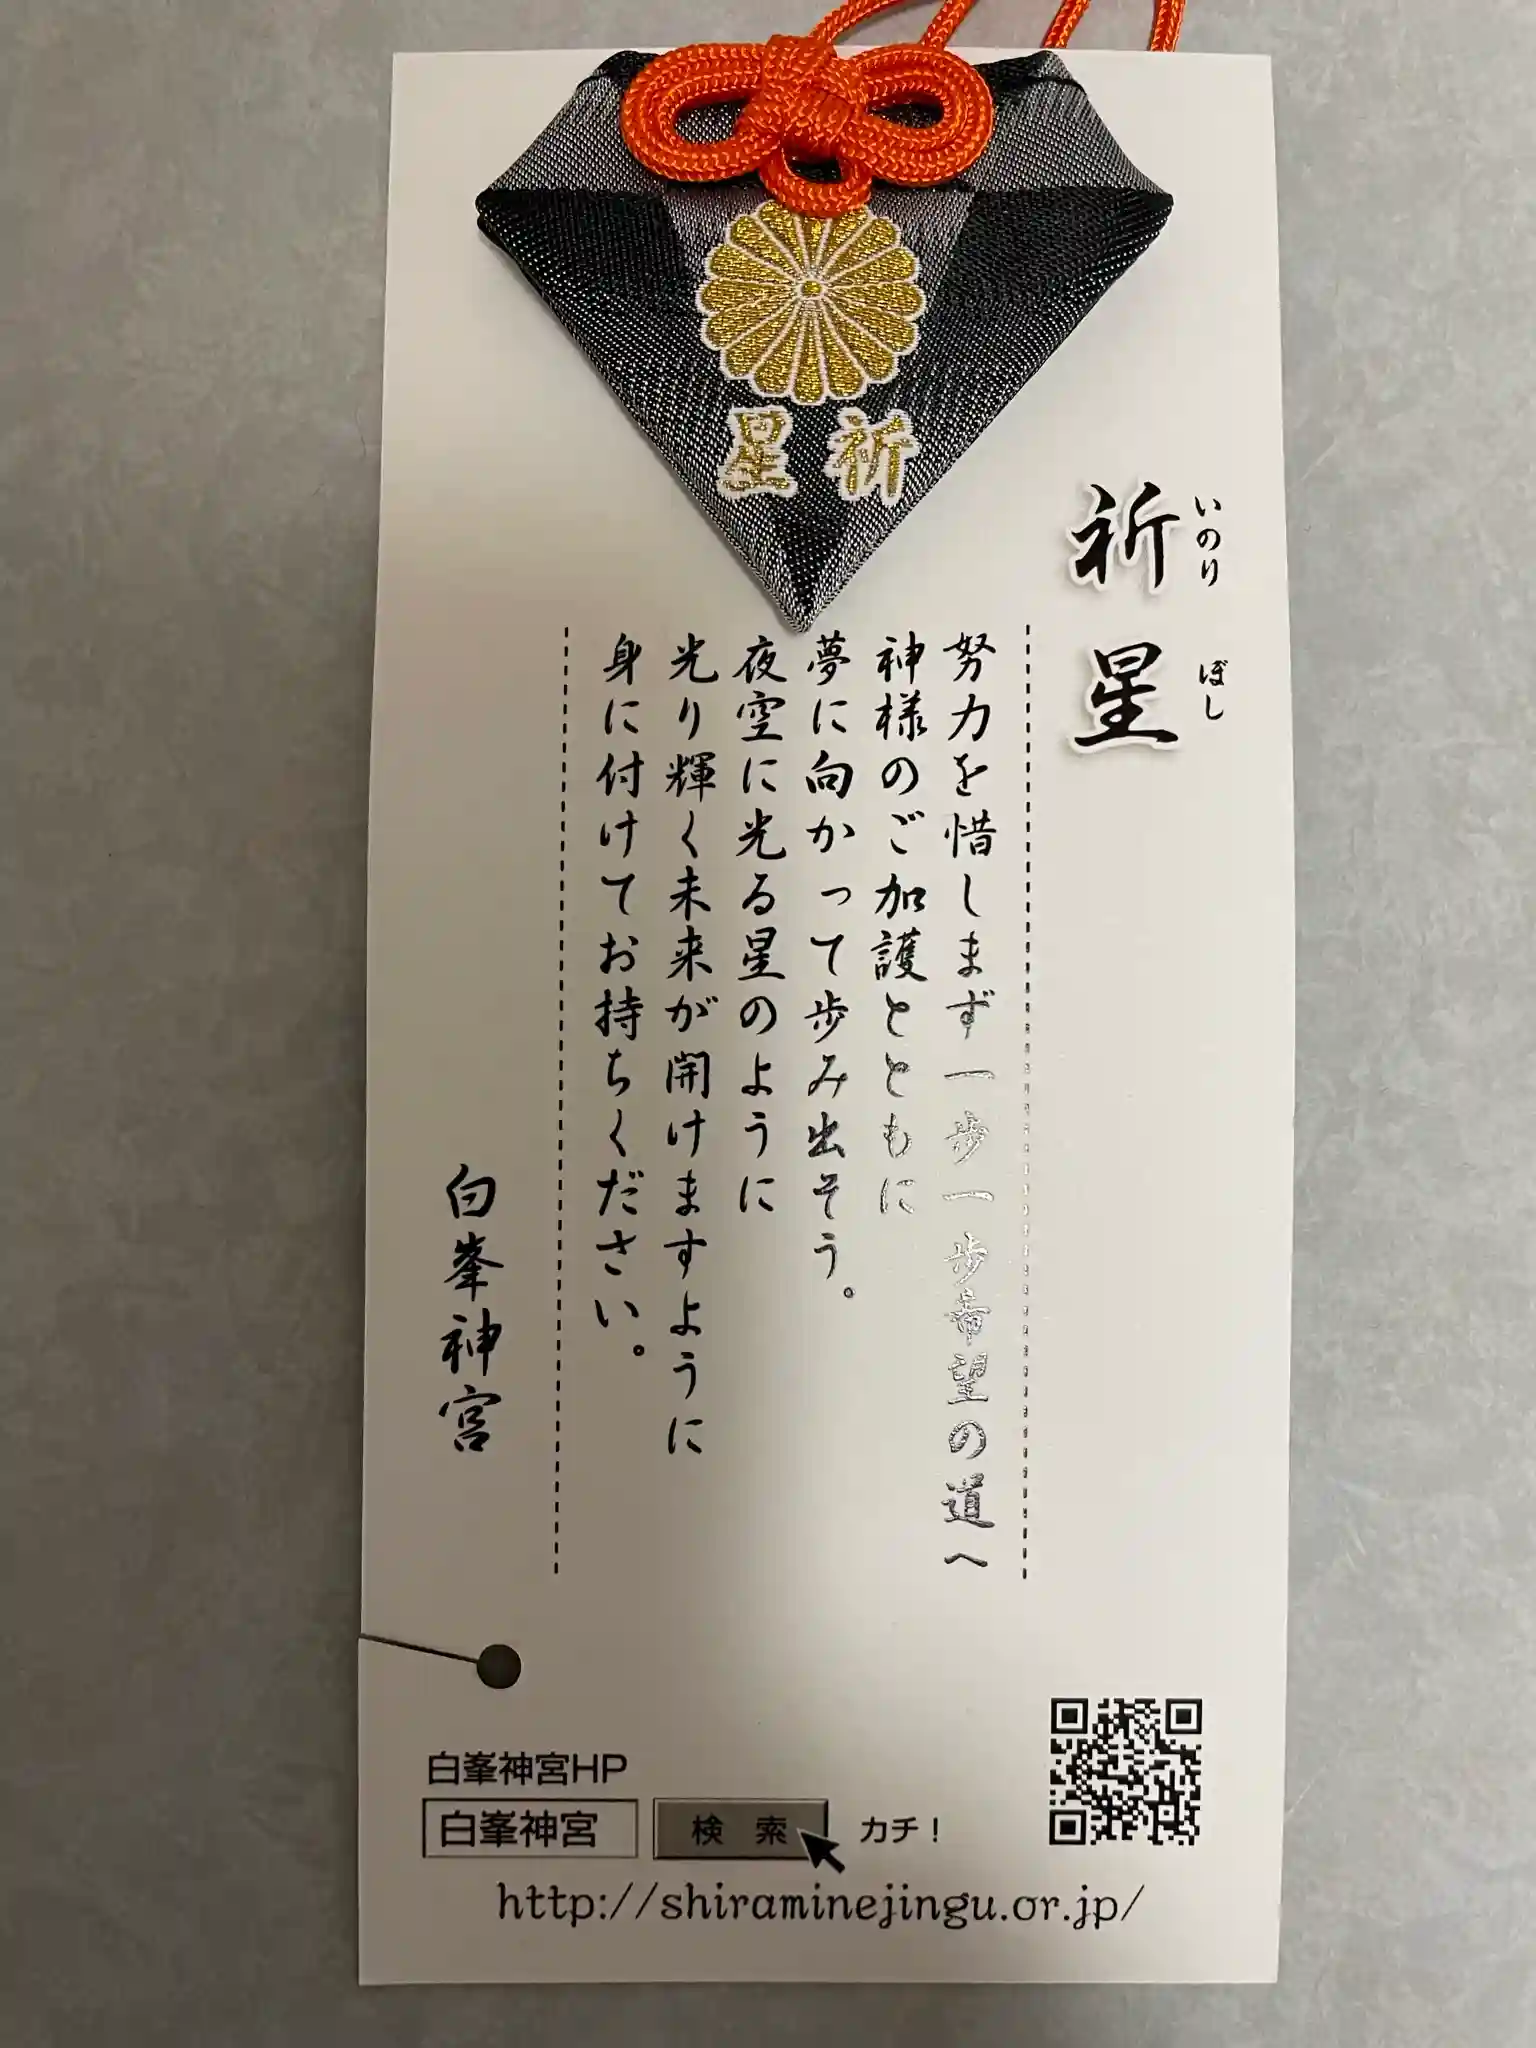 祈星
祈星
いのりぼし
努力を惜しまず一歩一歩希望の道へ
神様のご加護とともに
夢に向かって歩み出そう。
夜空に光る星のように
光り輝く未来が開けますように
身に付けてお持ちください。
白峯神宮
白峯神宮HP
白峯神宮
検 索
カチ！
http://shiraminejingu.or.jp/